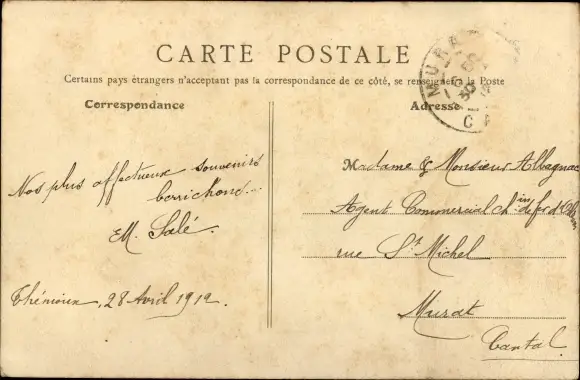 CARTE POSTALE
Certains pays étrangers n'acceptant pas la correspondance de ce côté, se renseigner à la Poste
Correspondance
Nos plus affectueux souvenirs
berrichons...
M. Salé.
Thénioux, 28 Avril 1912.
Adresse
Madame & Monsieur Albagnac
Agent Commercial ch ins de fer d'
rue St Michel
Murat
Cantal.
MURA